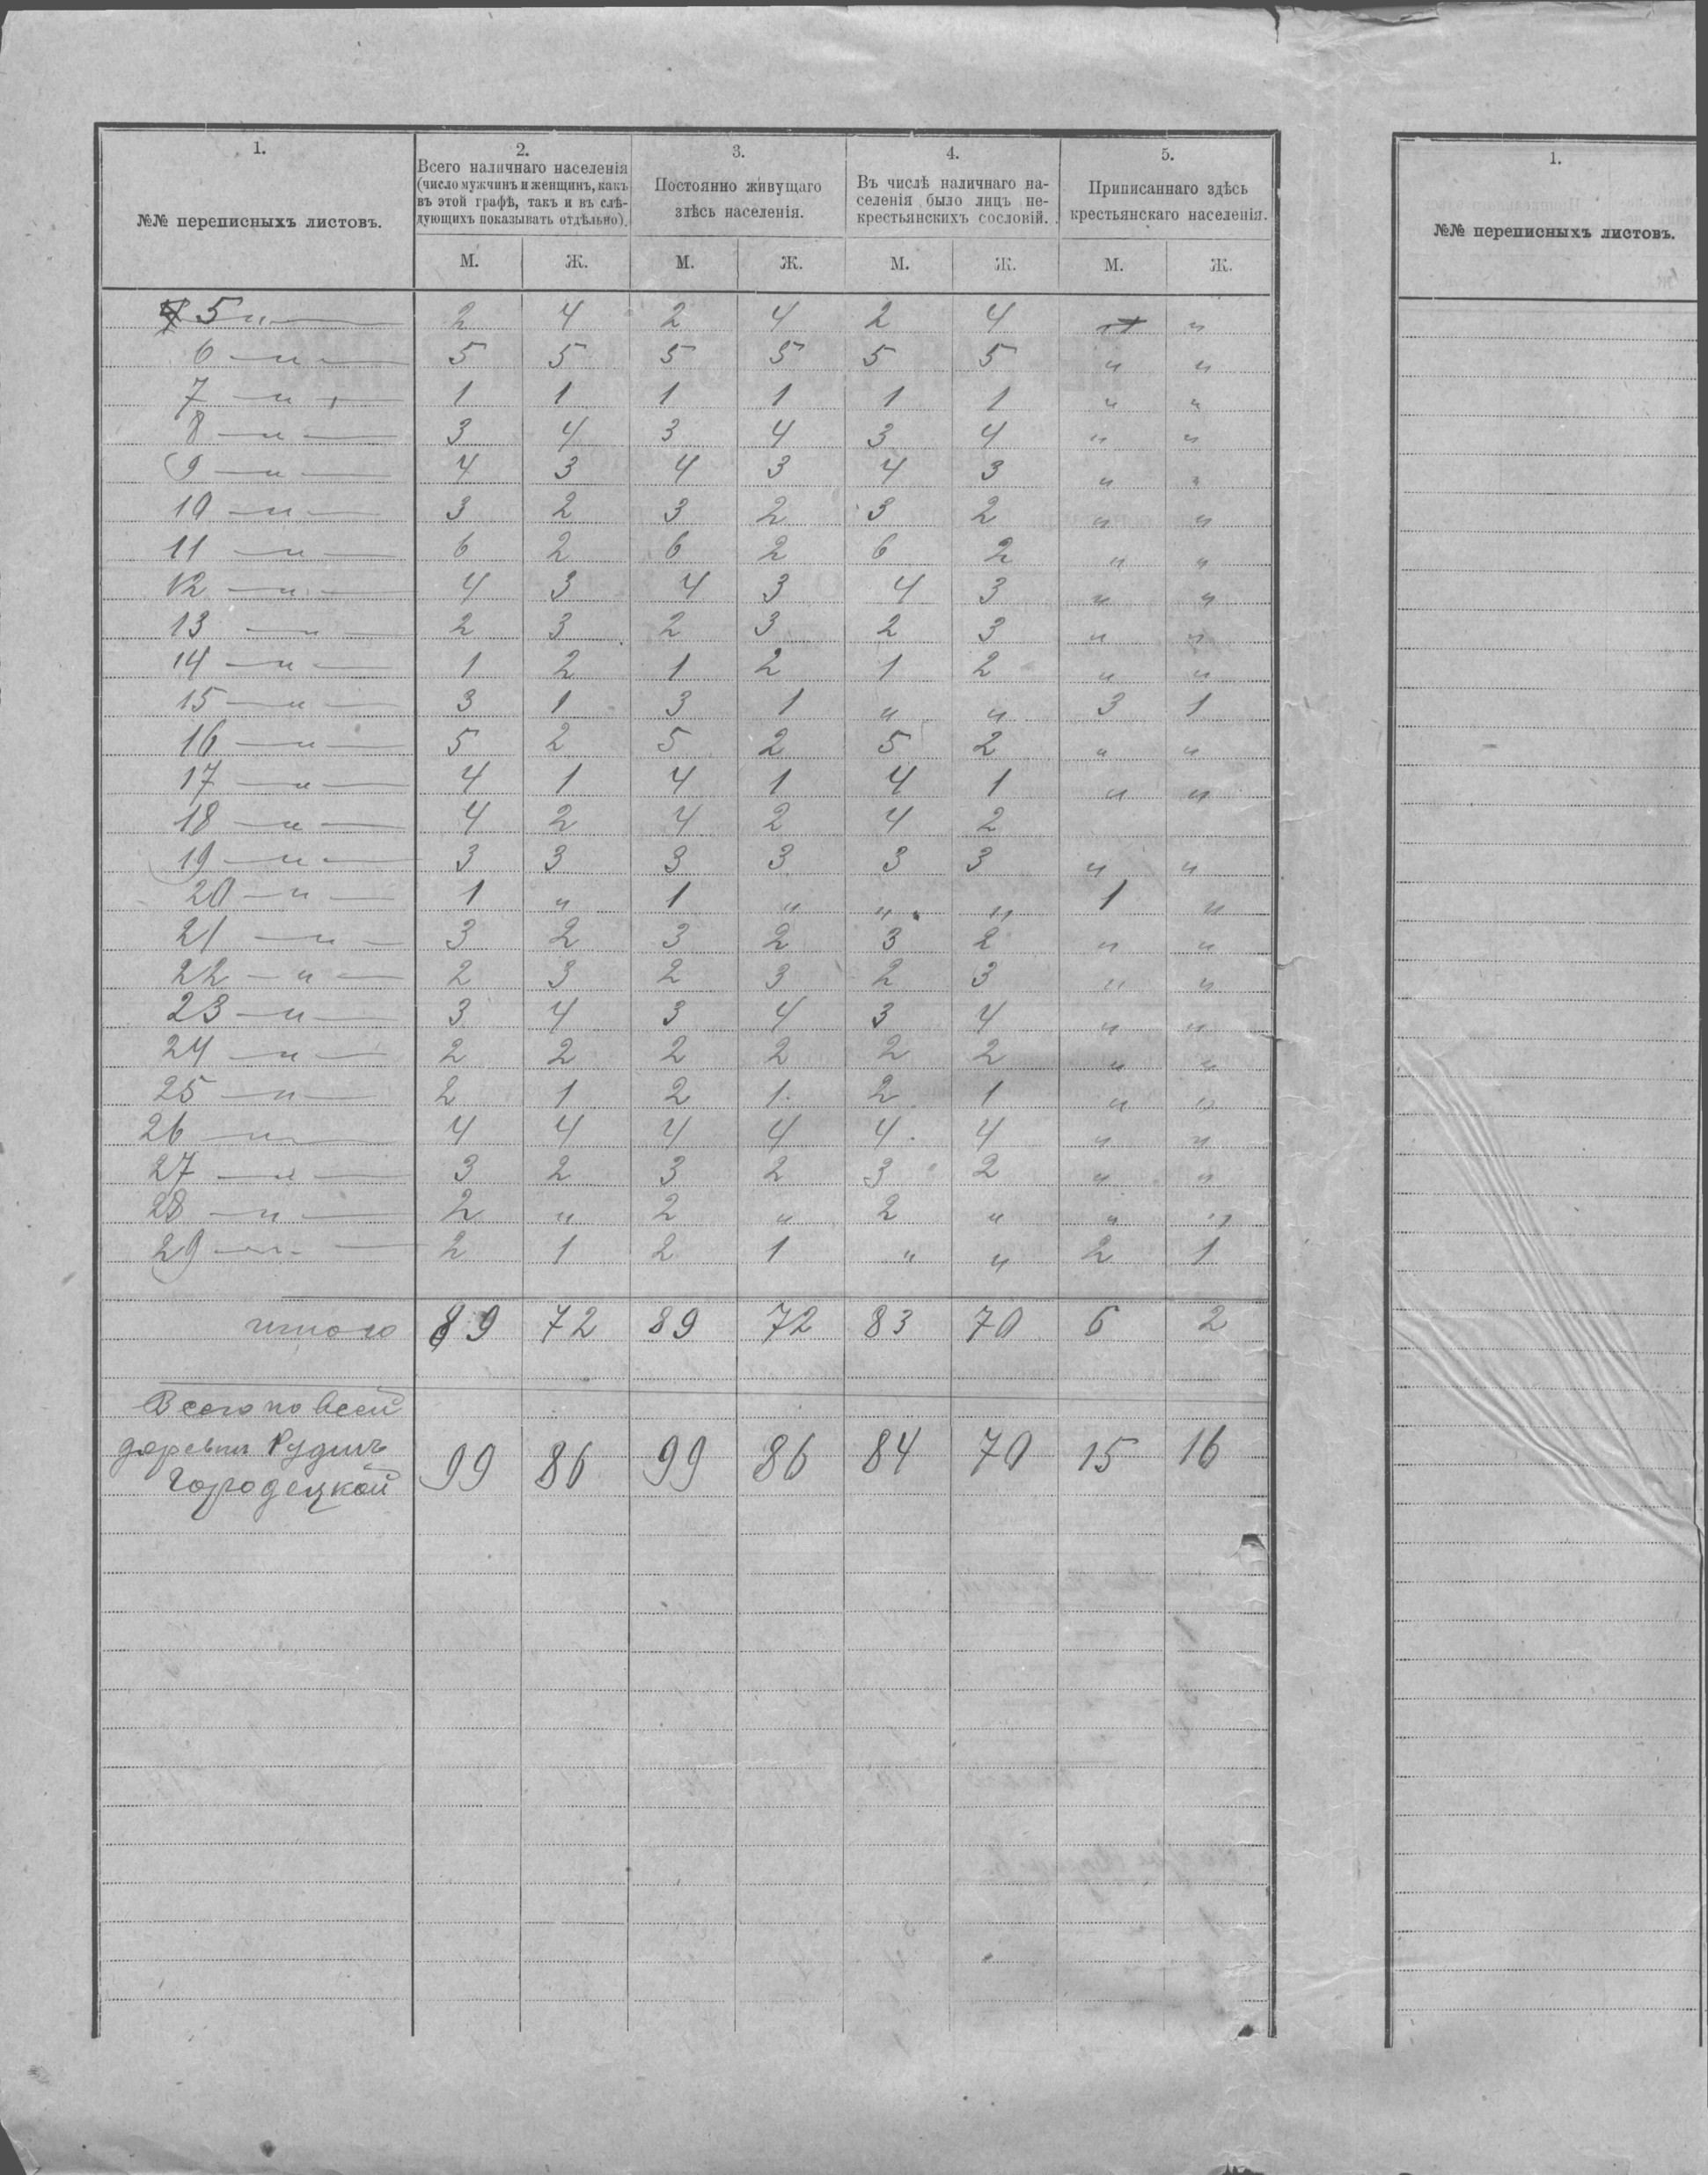 1.
№№ переписныхъ листовъ.
2.
Всего наличнаго населенія
(число мужчинъ и женщинъ, какъ
въ этой графѣ, такъ и въ слѣ-
дующихъ показывать отдѣльно).
3.
Постоянно живущаго
здѣсь населенія.
4.
Въ числѣ наличнаго на-
селенія было лицъ не-
крестьянскихъ сословій.
5.
Приписаннаго здѣсь
крестьянскаго населенія.
М. Ж. М. Ж. М. Ж. М. Ж.
5 — „ — 2 4 2 4 2 4 „ „
6 — „ — 5 5 5 5 5 5 „ „
7 — „ — 1 1 1 1 1 1 „ „
8 — „ — 3 4 3 4 3 4 „ „
9 — „ — 4 3 4 3 4 3 „ „
10 — „ — 3 2 3 2 3 2 „ „
11 — „ — 6 2 6 2 6 2 „ „
12 — „ — 4 3 4 3 4 3 „ „
13 — „ — 2 3 2 3 2 3 „ „
14 — „ — 1 2 1 2 1 2 „ „
15 — „ — 3 1 3 1 „ „ 3 1
16 — „ — 5 2 5 2 5 2 „ „
17 — „ — 4 1 4 1 4 1 „ „
18 — „ — 4 2 4 2 4 2
19 — „ — 3 3 3 3 3 3 „ „
20 — „ — 1 „ 1 „ „ „ 1 „
21 — „ — 3 2 3 2 3 2 „ „
22 — „ — 2 3 2 3 2 3 „ „
23 — „ — 3 4 3 4 3 4 „ „
24 — „ — 2 2 2 2 2 2 „ „
25 — „ — 2 1 2 1 2 1 „ „
26 — „ — 4 4 4 4 4 4 „ „
27 — „ — 3 2 3 2 3 2 „ „
28 — „ — 2 „ 2 „ 2 „ „ „
29 — „ — 2 1 2 1 „ „ 2 1
итого 89 72 89 72 83 70 6 2
Всего по всей
деревни Рудни
Городецкой 99 86 99 86 84 70 15 16
1.
№№ переписныхъ листовъ.